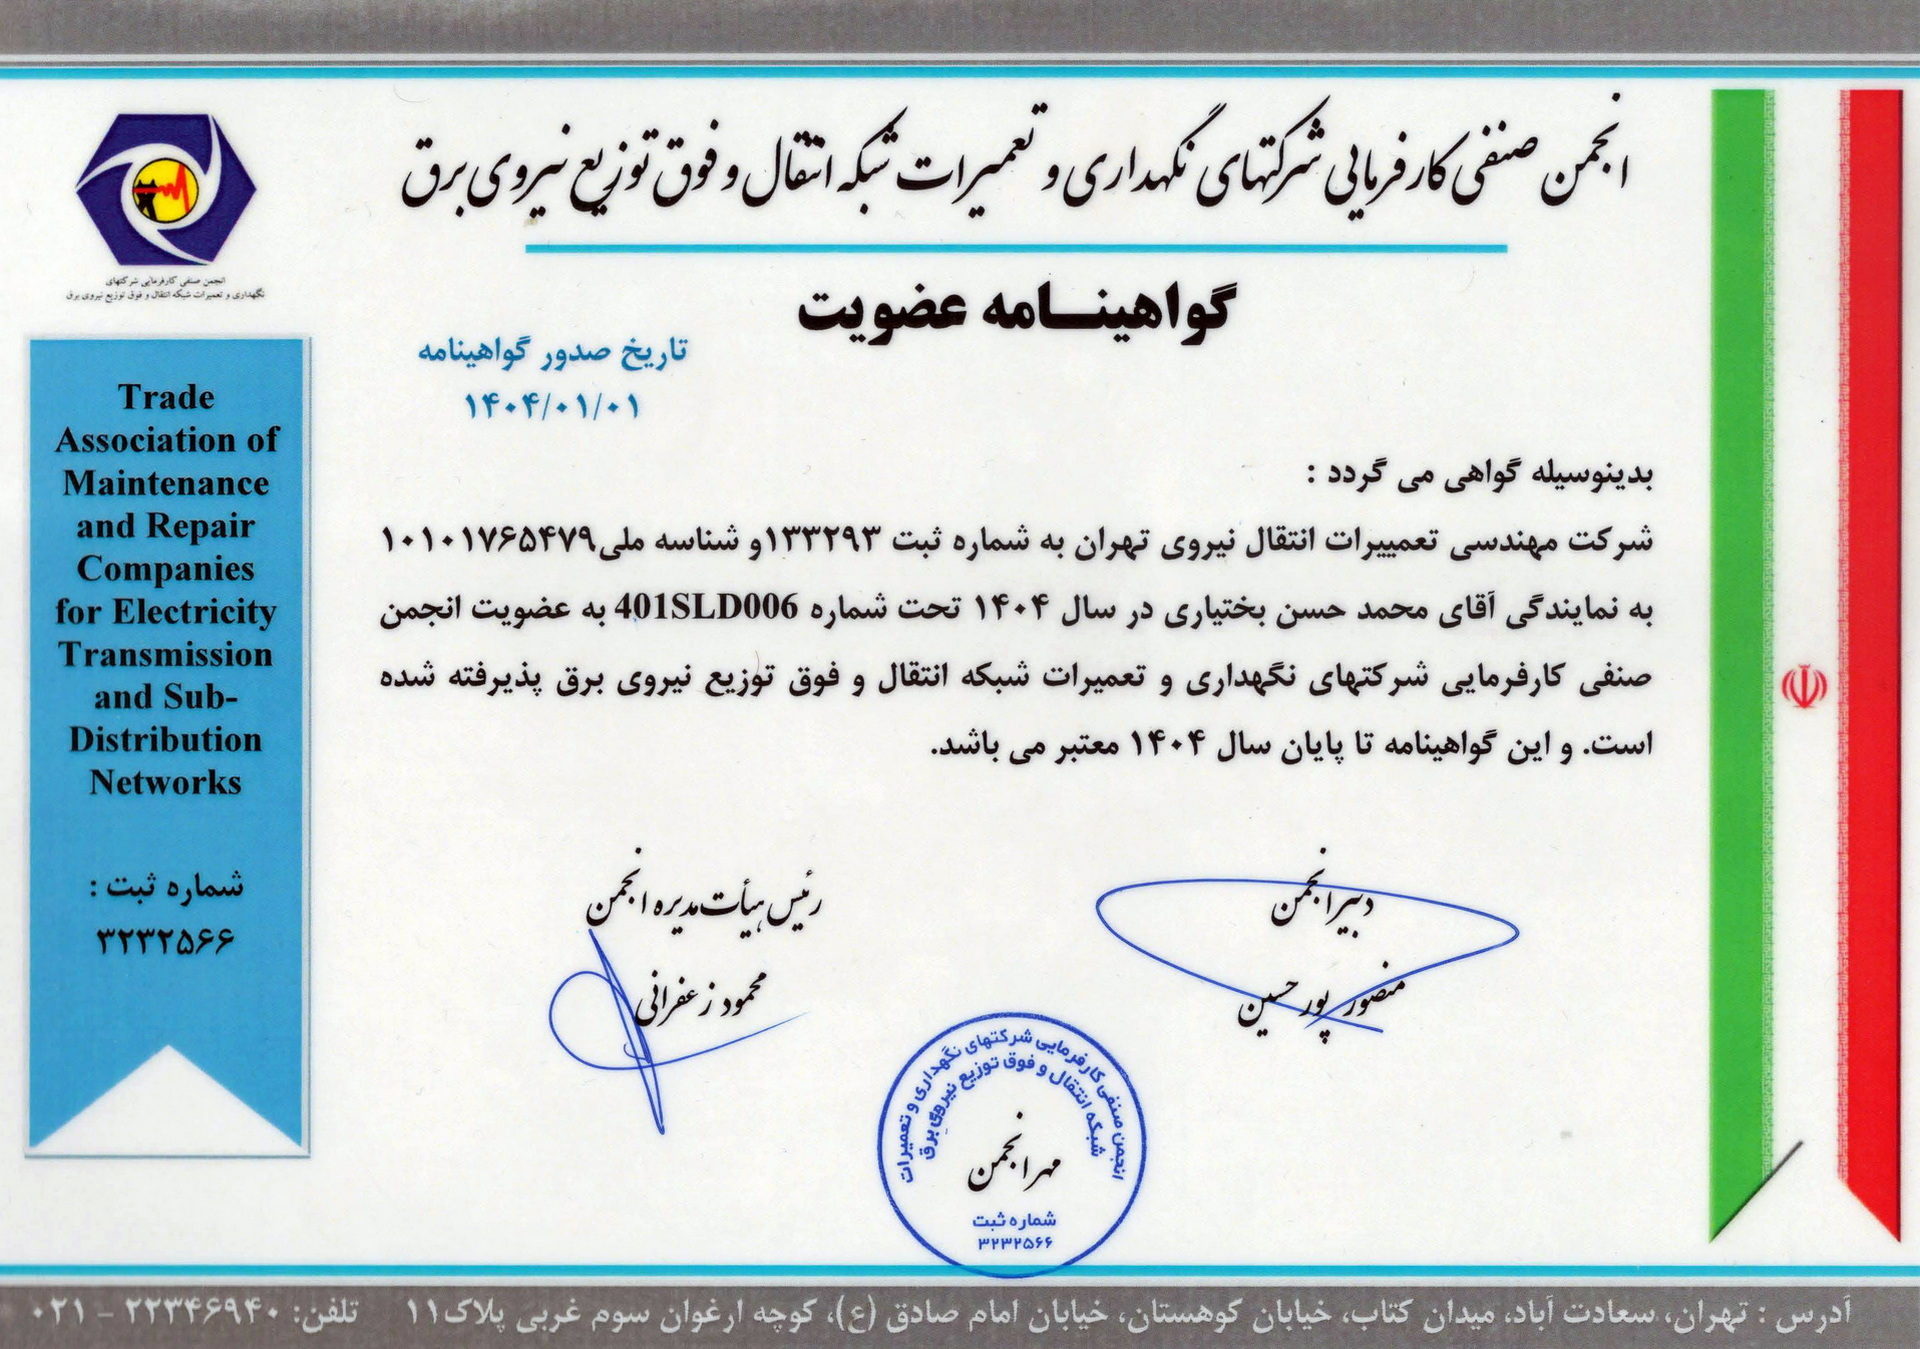 انجمن صنفی کارفرمایی شرکتهای نگهداری و تعمیرات شبکه انتقال و فوق توزیع نیروی برق
انجمن صنفی کارفرمایی شرکتهای
نگهداری و تعمیرات شبکه انتقال و فوق توزیع نیروی برق
گواهینـــامه عضویت
تاریخ صدور گواهینامه
۱۴۰۴/۰۱/۰۱
بدینوسیله گواهی می گردد :
شرکت مهندسی تعمییرات انتقال نیروی تهران به شماره ثبت ۱۳۳۲۹۳و شناسه ملی۱۰۱۰۱۷۶۵۴۷۹
به نمایندگی آقای محمد حسن بختیاری در سال ۱۴۰۴ تحت شماره 401SLD006 به عضویت انجمن
صنفی کارفرمایی شرکتهای نگهداری و تعمیرات شبکه انتقال و فوق توزیع نیروی برق پذیرفته شده
است. و این گواهینامه تا پایان سال ۱۴۰۴ معتبر می باشد.
Trade
Association of
Maintenance
and Repair
Companies
for Electricity
Transmission
and Sub-
Distribution
Networks
شماره ثبت :
۳۲۳۲۵۶۶
دبیر انجمن
منصور پور حسین
رئیس هیأت مدیره انجمن
محمود زعفرانی
انجمن صنفی کارفرمایی شرکتهای نگهداری و تعمیرات
شبکه انتقال و فوق توزیع نیروی برق
مهر انجمن
شماره ثبت
۳۲۳۲۵۶۶
آدرس : تهران، سعادت آباد، میدان کتاب، خیابان کوهستان، خیابان امام صادق (ع)، کوچه ارغوان سوم غربی پلاک۱۱ تلفن: ۲۲۳۴۶۹۴۰ - ۰۲۱